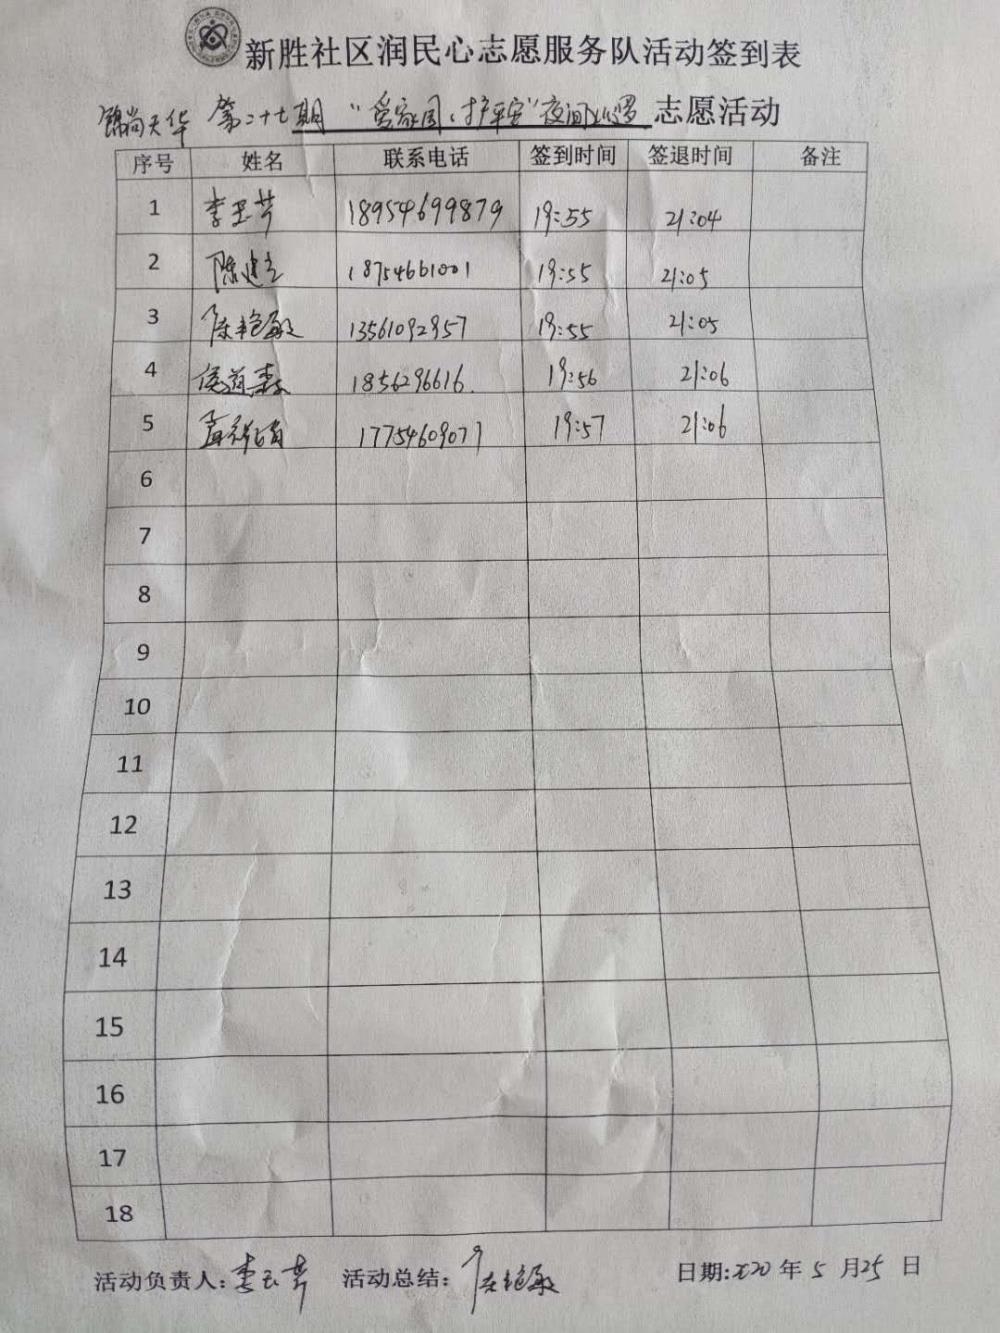 新胜社区润民心志愿服务队活动签到表
锦尚天华 第二十七期 "爱家园、护平安"夜间巡逻 志愿活动
序号 姓名 联系电话 签到时间 签退时间 备注
1 李玉芹 18954699879 19:55 21:04
2 陈建立 18754661001 19:55 21:05
3 陈艳敏 13561092957 19:55 21:05
4 侯道森 1856296616 19:56 21:06
5 17754609077 19:57 21:06
6
7
8
9
10
11
12
13
14
15
16
17
18
活动负责人:李玉芹 活动总结:陈艳敏 日期:2020 年 5 月 25 日